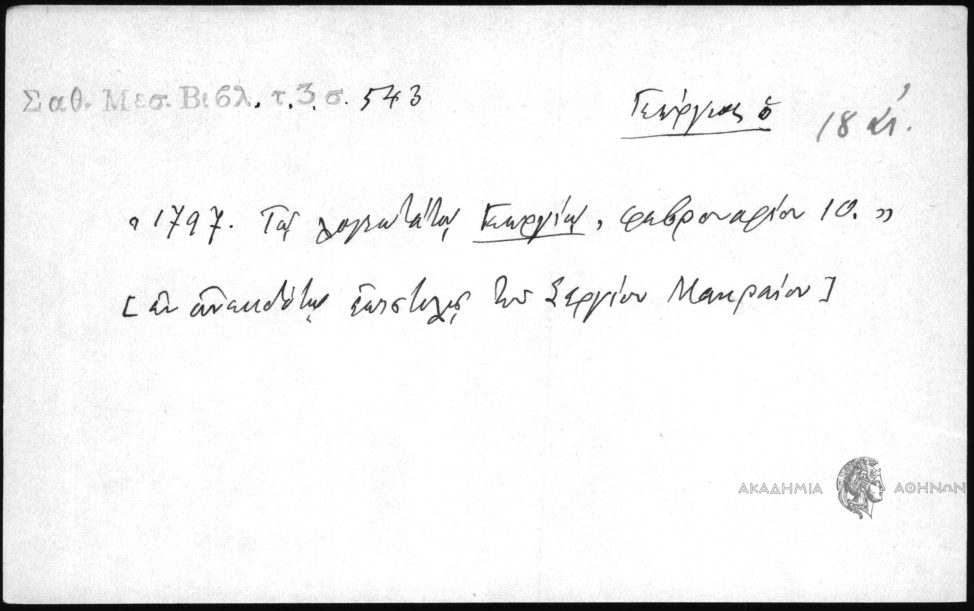 Σαθ. Μεσ. Βιβλ. τ. 3. σ. 543
Γεώργιος ὁ
18 αἰ.
« 1797. Τῷ λογιωτάτῳ Γεωργίῳ, φεβρουαρίου 10. »
[ἐν ἀνεκδότῳ ἐπιστολῇ τοῦ Σεργίου Μακραίου]
ΑΚΑΔΗΜΙΑ ΑΘΗΝΩΝ